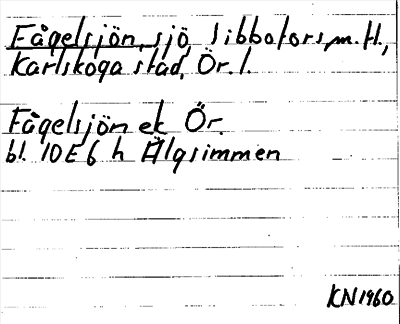 Fågelsjön, sjö, Sibbofors, m.H.,
Karlskoga stad, Ör.l.
Fågelsjön ek Ör.
bl. 10E6 h Älgsimmen
KN1960